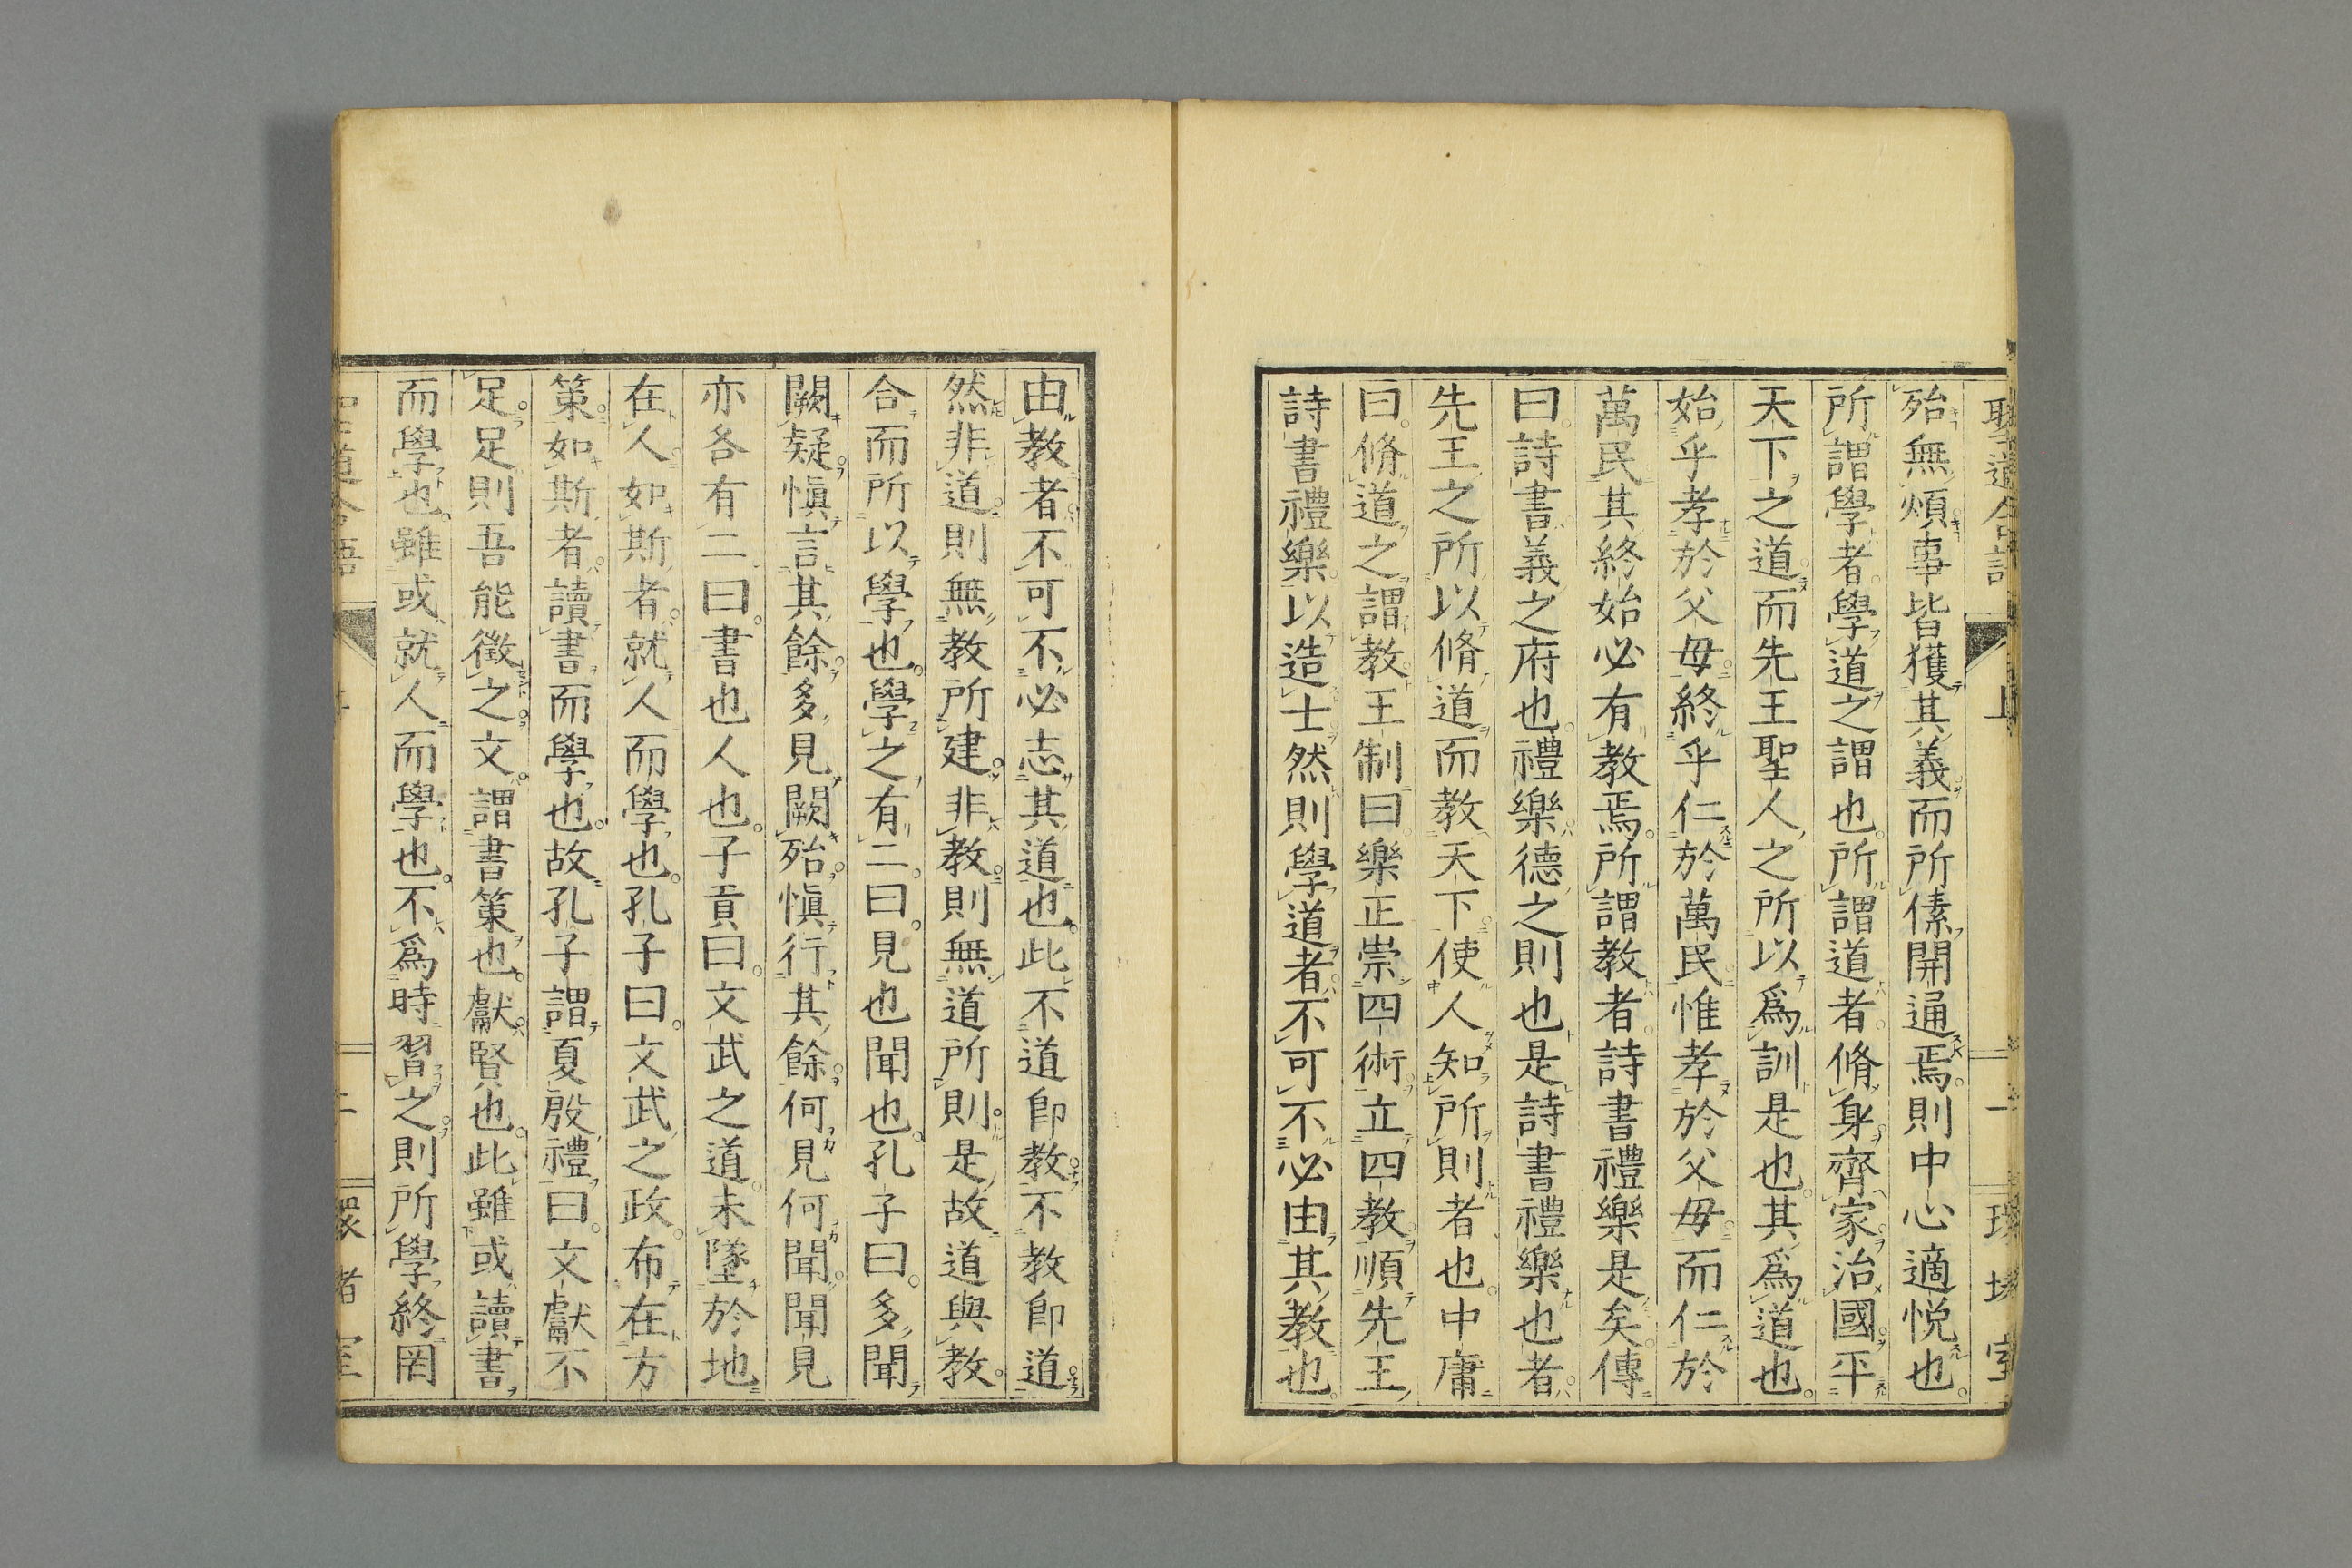 殆無煩事皆獲其義而所傃開通焉則中心適悅也
所謂學者學道之謂也所謂道者脩身齊家治國平
天下之道而先王聖人之所以爲訓是也其爲道也
始乎孝於父母終乎仁於萬民惟孝於父母而仁於
萬民其終始必有教焉所謂教者詩書禮樂是矣傳
曰詩書義之府也禮樂德之則也是詩書禮樂也者
先王之所以脩道而教天下使人知所則者也中庸
曰脩道之謂教王制曰樂正崇四術立四教順先王
詩書禮樂以造士然則學道者不可不必由其教也
由教者不可不必志其道也此不道卽教不教卽道
然非道則無教所建非教則無道所則是故道與教
合而所以學也學之有二曰見也聞也孔子曰多聞
闕疑愼言其餘多見闕殆愼行其餘何見何聞聞見
亦各有二曰書也人也子貢曰文武之道未墜於地
在人如斯者就人而學也孔子曰文武之政布在方
策如斯者讀書而學也故孔子謂夏殷禮曰文獻不
足足則吾能徵之文謂書策也獻賢也此雖或讀書
而學也雖或就人而學也不爲時習之則所學終罔